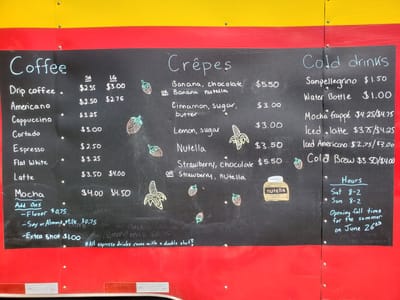 Coffee
SM LG
Drip coffee $2.25 $3.00
Americano $2.50 $2.75
Cappuccino $3.25
Cortado $3.00
Espresso $2.50
Flat White $3.25
Latte $3.50 $4.00
Mocha $4.00 $4.50
Add Ons
- Flavor $0.75
- Soy or Almond $0.75
- Extra Shot $1.00
*All espresso drinks come with a double shot*
Crêpes
Banana, chocolate $5.50
OR Banana nutella
Cinnamon, sugar, butter $3.00
Lemon, sugar $3.00
Nutella $3.50
Strawberry, chocolate $5.50
OR Strawberry, nutella
nutella
Cold drinks
Sanpellegrino $1.50
Water Bottle $1.00
Mocha frappé $4.25/$4.75
Iced latte $3.75/$4.25
Iced Americano $2.75/$3.00
Cold Brew $3.50/$4.00
Hours
Sat 8-2
Sun 8-2
Opening full time
for the summer
on June 26th